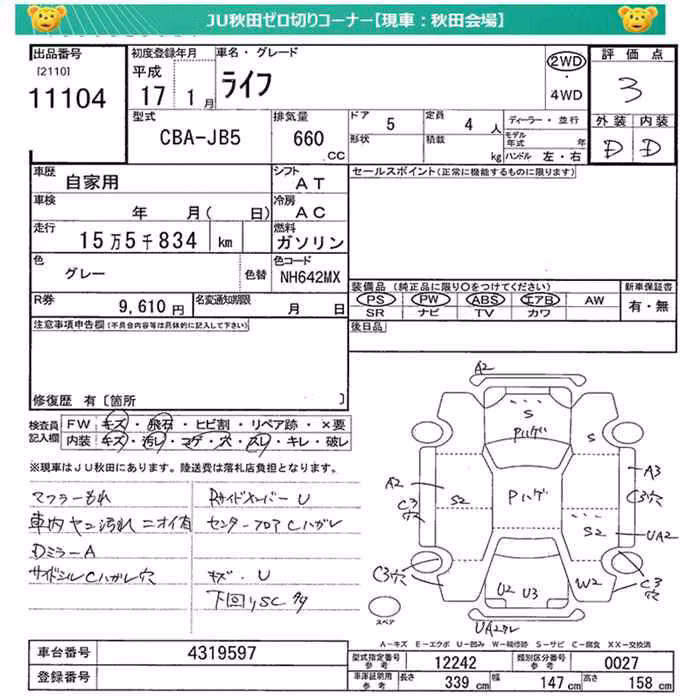 JU秋田ゼロ切りコーナー【現車：秋田会場】
出品番号
[2110]
11104
初度登録年月
平成
17 1月
車名・グレード
ライフ
2WD
・
4WD
評価点
3
外装 内装
D D
型式
CBA-JB5
排気量
660
CC
ドア 5 定員 4 人
形状 積載 kg
ディーラー・並行
モデル年式 年
ハンドル 左・右
車歴 自家用
シフト AT
セールスポイント(正常に機能するものに限ります)
車検 年 月( 日)
冷房 AC
走行 15万5千834 km
燃料 ガソリン
色 グレー 色替
色コード NH642MX
装備品 (純正品に限り○をつけてください)
新車保証書
PS PW ABS エアB AW
有・無
SR ナビ TV カワ
R券 9,610円
名変通知期限 月 日
後日品
注意事項申告欄(不具合内容等は具体的に記入して下さい)
修復歴 有〔箇所 〕
検査員記入欄
FW キズ・飛石・ヒビ割・リペア跡・×要
内装 キズ・汚レ・コゲ・穴・スレ・キレ・破レ
※現車はJU秋田にあります。陸送費は落札店負担となります。
マフラーもれ
車内ヤニ汚れ ニオイ有
DミラーA
サイドシルCハガレ穴
RサイドメンバーU
センターフロアCハガレ
キズ・U
下回りSC
A2
S
Pハゲ
S
A2
C3穴
S2
Pハゲ
A3
C3穴
S2
UA2
C3穴
U2 U3
W2
C3穴
スペア
UA2
A-キズ E-エクボ U-凹み W-補修跡 S-サビ C-腐食 XX-交換済
車台番号 4319597
登録番号
型式指定番号参考 12242
類別区分番号参考 0027
車庫証明用参考 長さ 339cm 幅 147cm 高さ 158cm